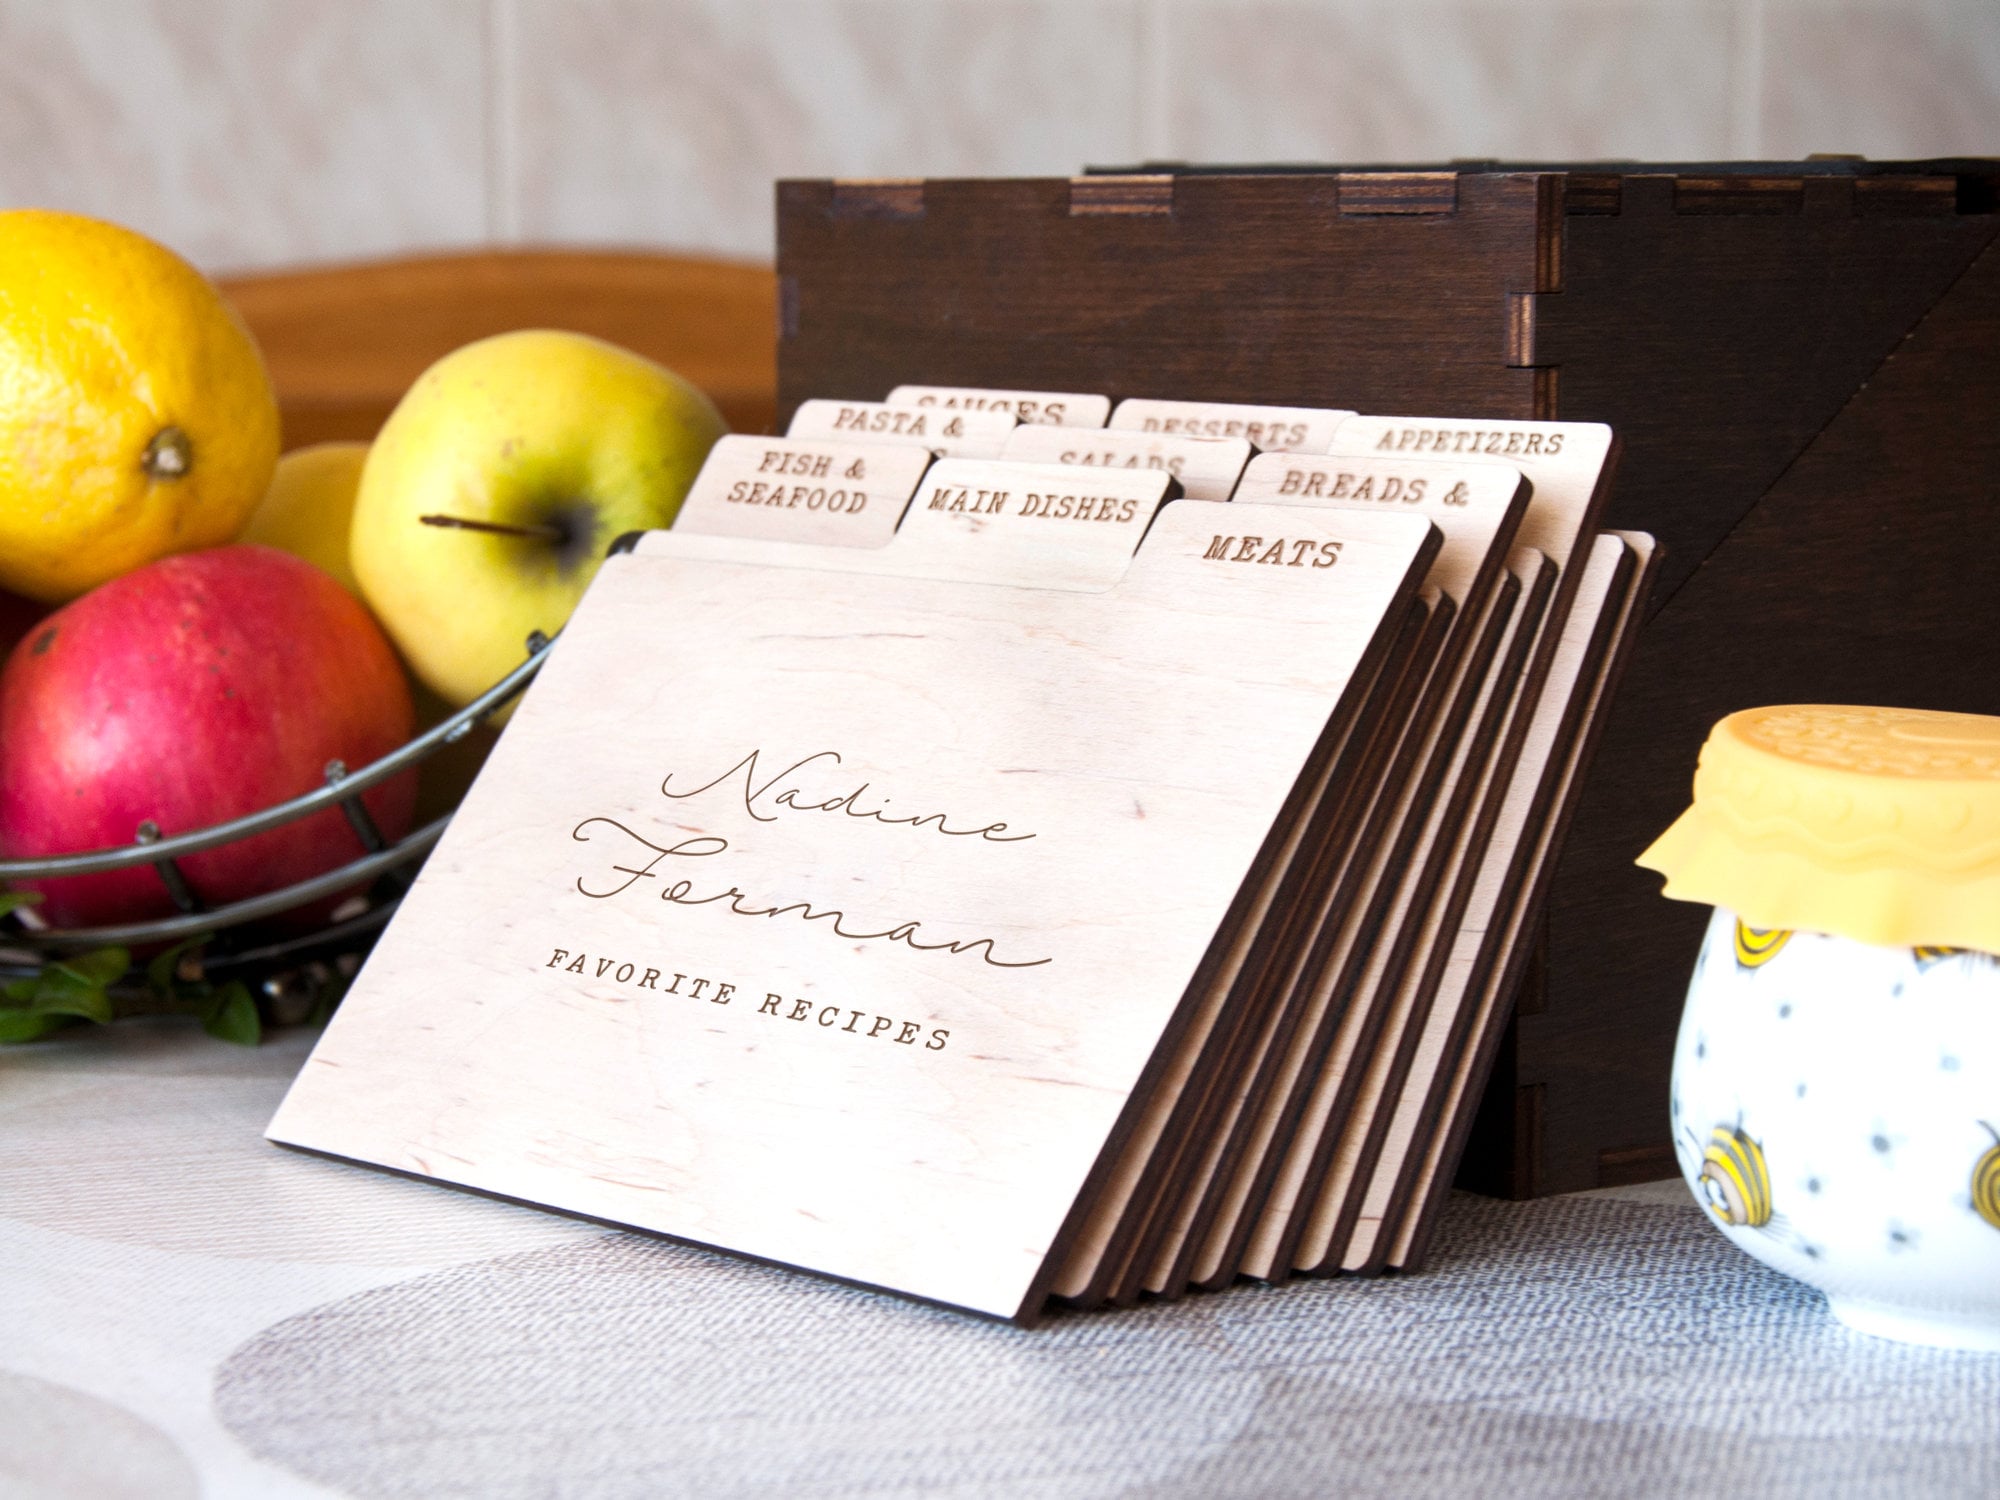 SAUCES
DESSERTS
APPETIZERS
PASTA &
SALADS
BREADS &
FISH &
SEAFOOD
MAIN DISHES
MEATS
Nadine
Forman
FAVORITE RECIPES